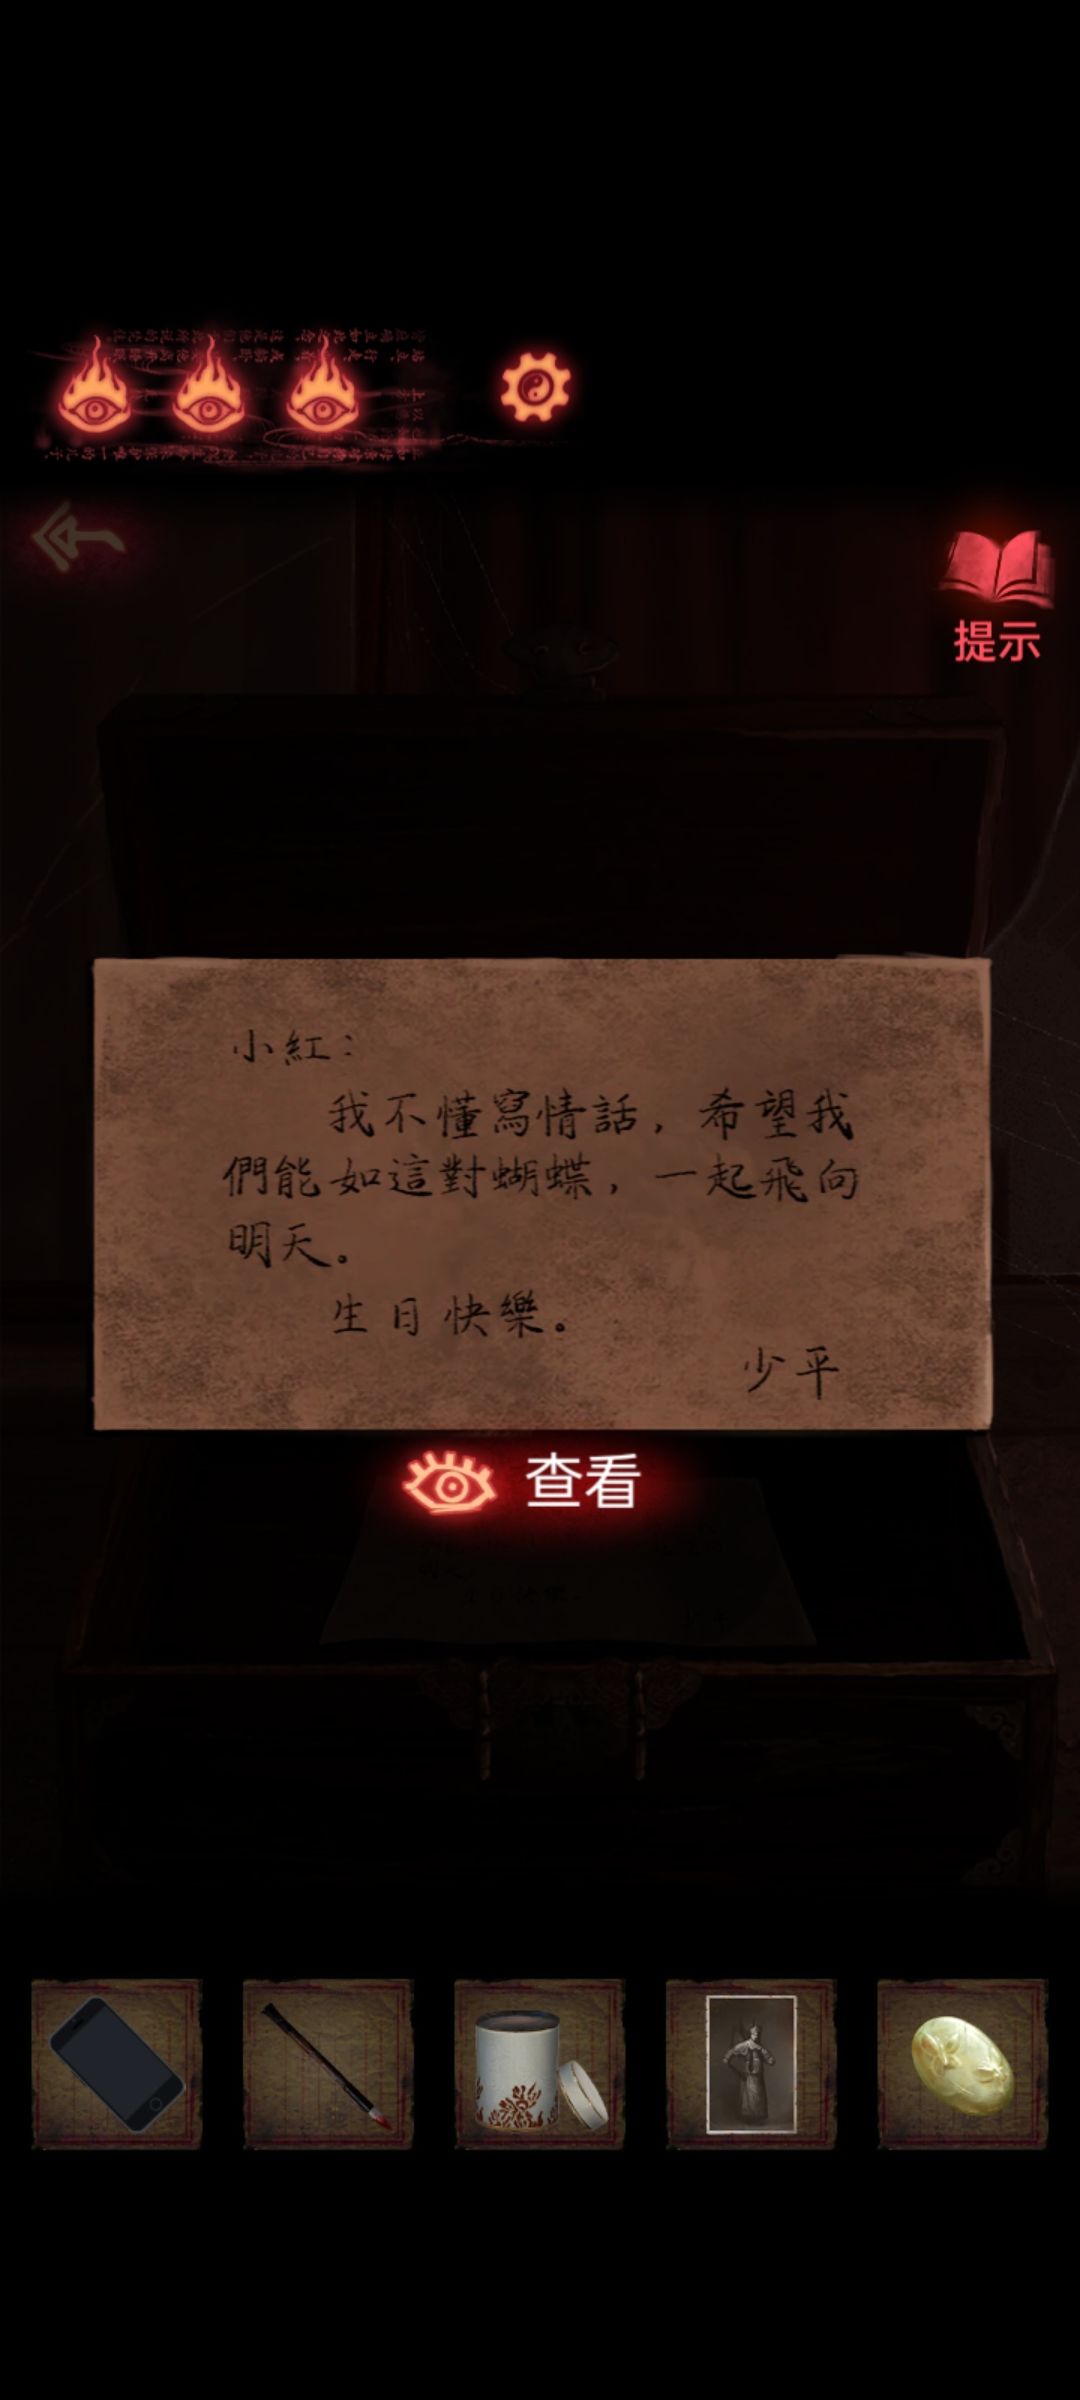 提示
小紅：
我不懂寫情話，希望我
們能如這對蝴蝶，一起飛向
明天。
生日快樂。
少平
查看